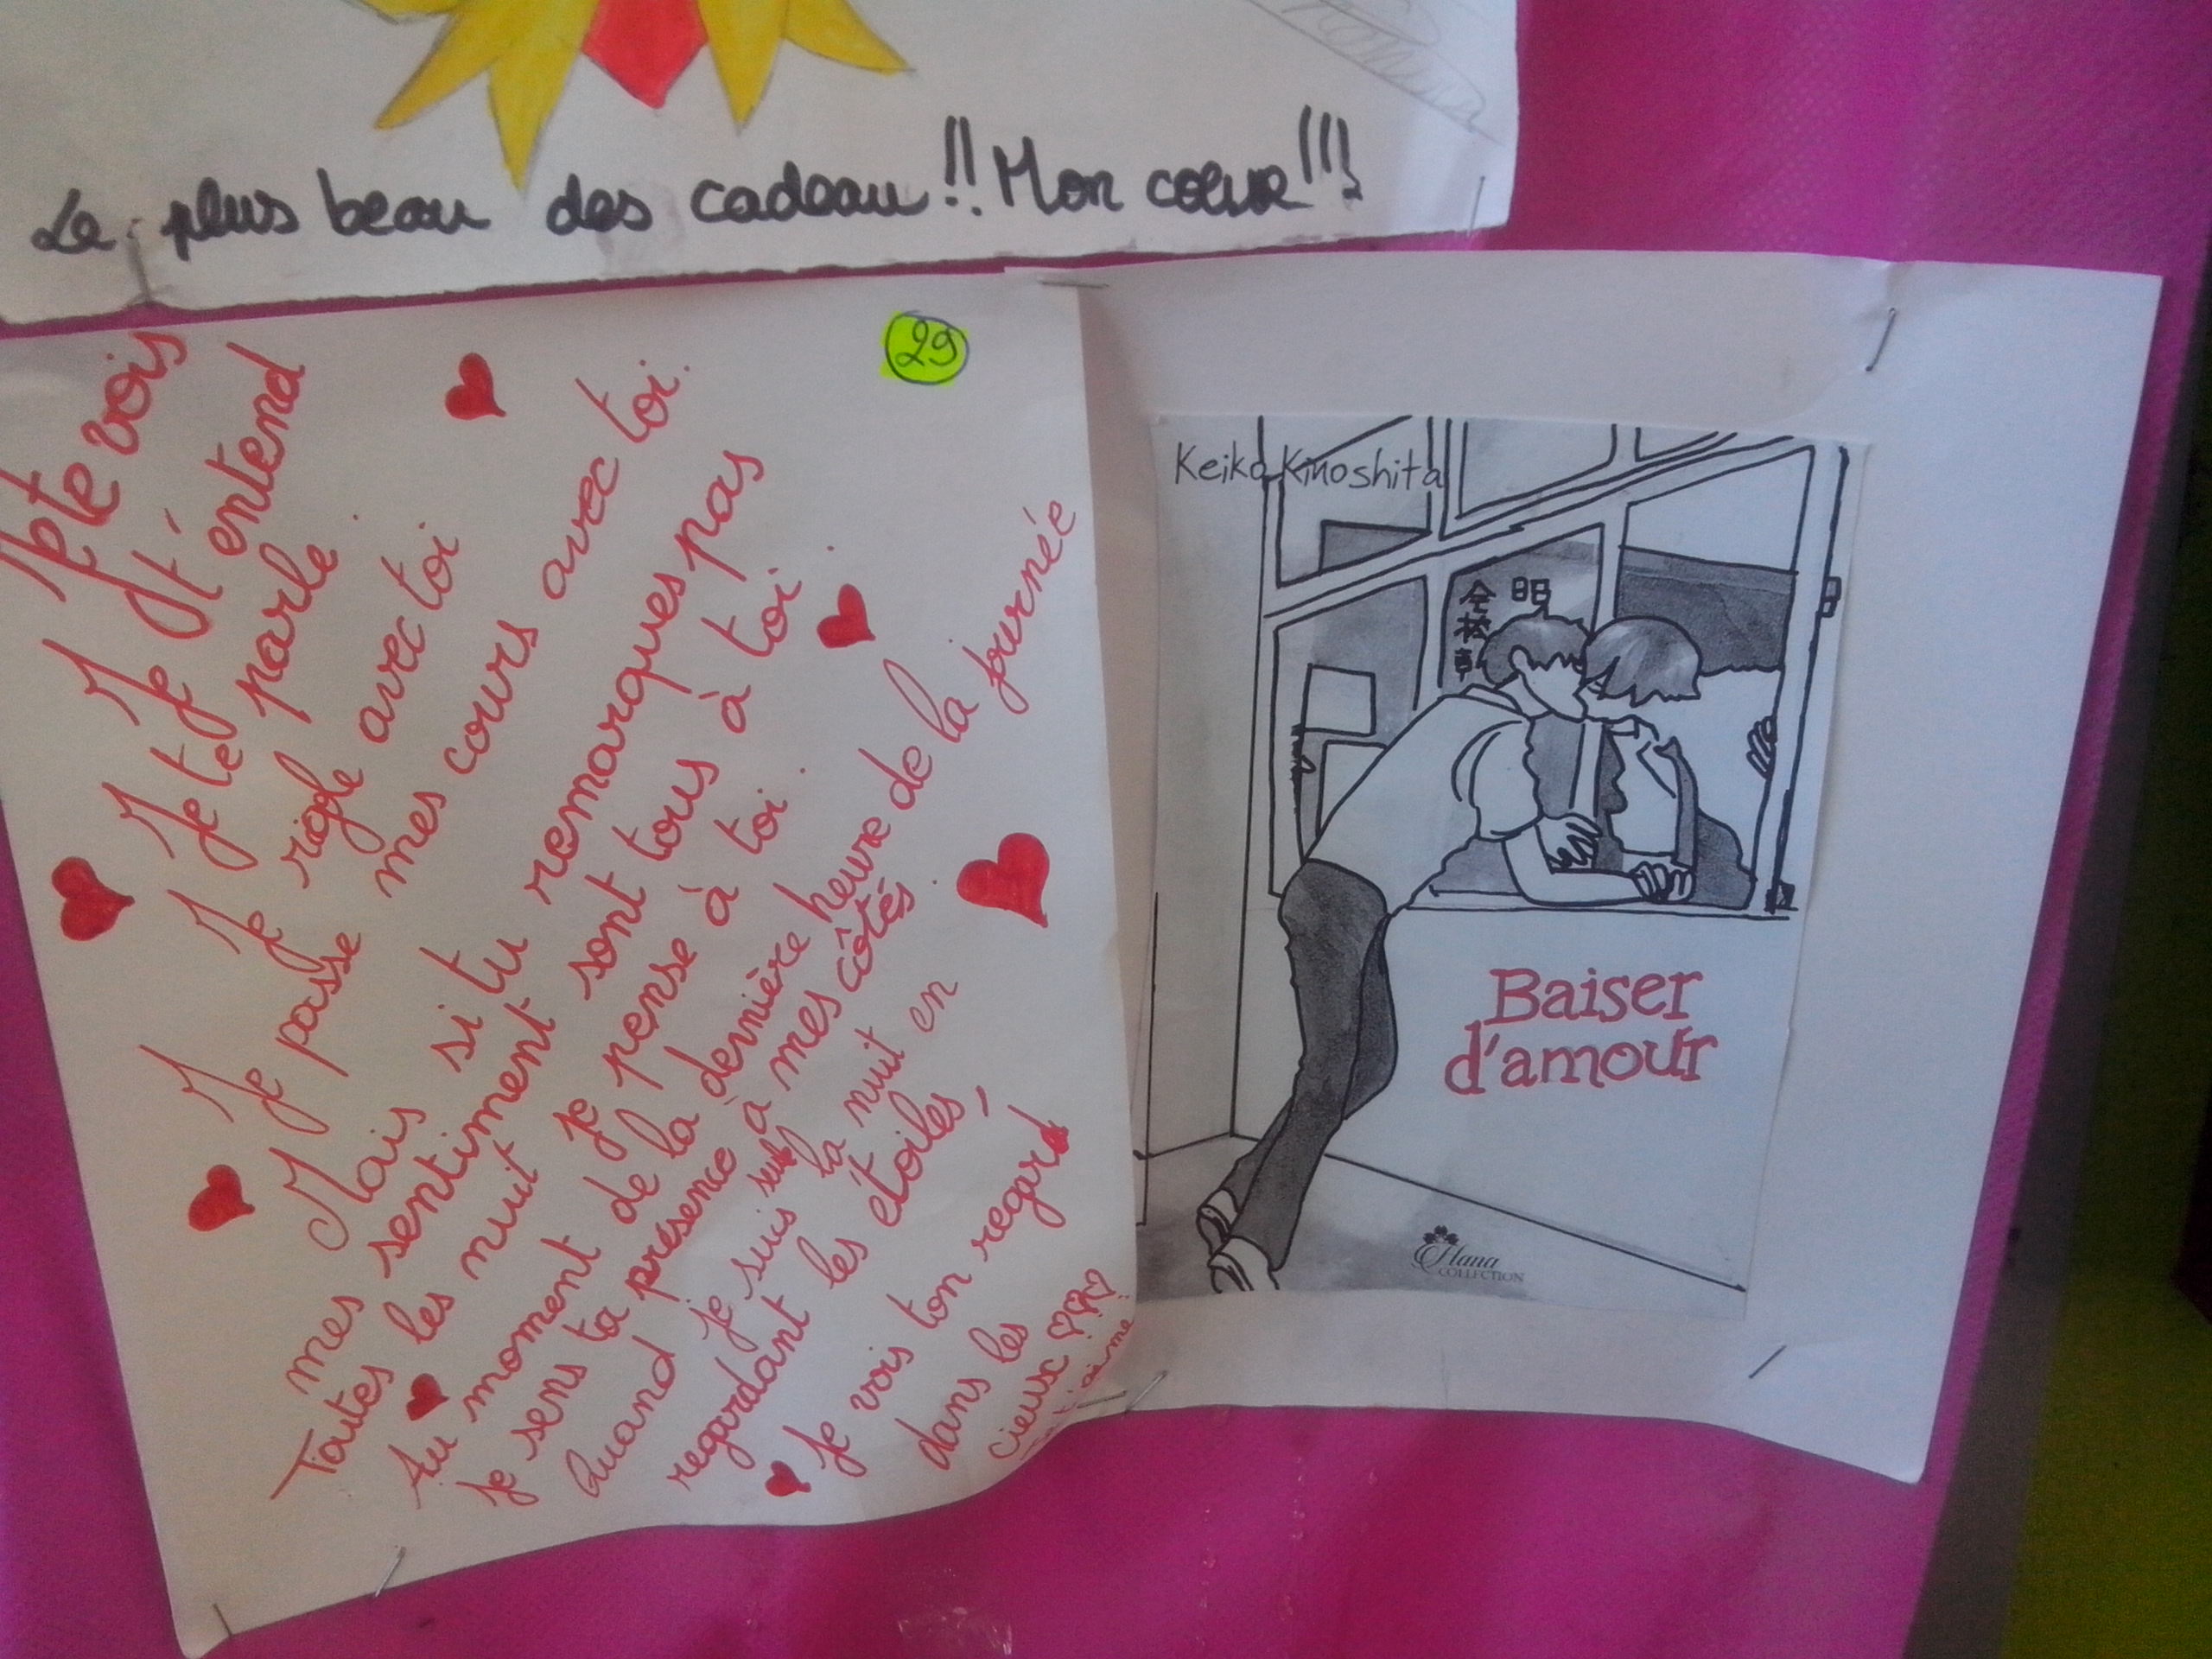 Le plus beau des cadeau!! Mon coeur!!!
29
Je te vois
Je t'entend
Je te parle
Je rigole avec toi
Je passe mes cours avec toi.
Mais si tu remarques pas
mes sentiment sont tous à toi.
Toutes les nuit je pense à toi.
Au moment de la dernière heure de la journée
Je sens ta présence à mes côtés.
Quand je suis la nuit en
regardant les étoiles,
Je vois ton regard
dans les
cieux
t'aime
Keiko Kinoshita
Baiser
d'amour
Hana
COLLECTION